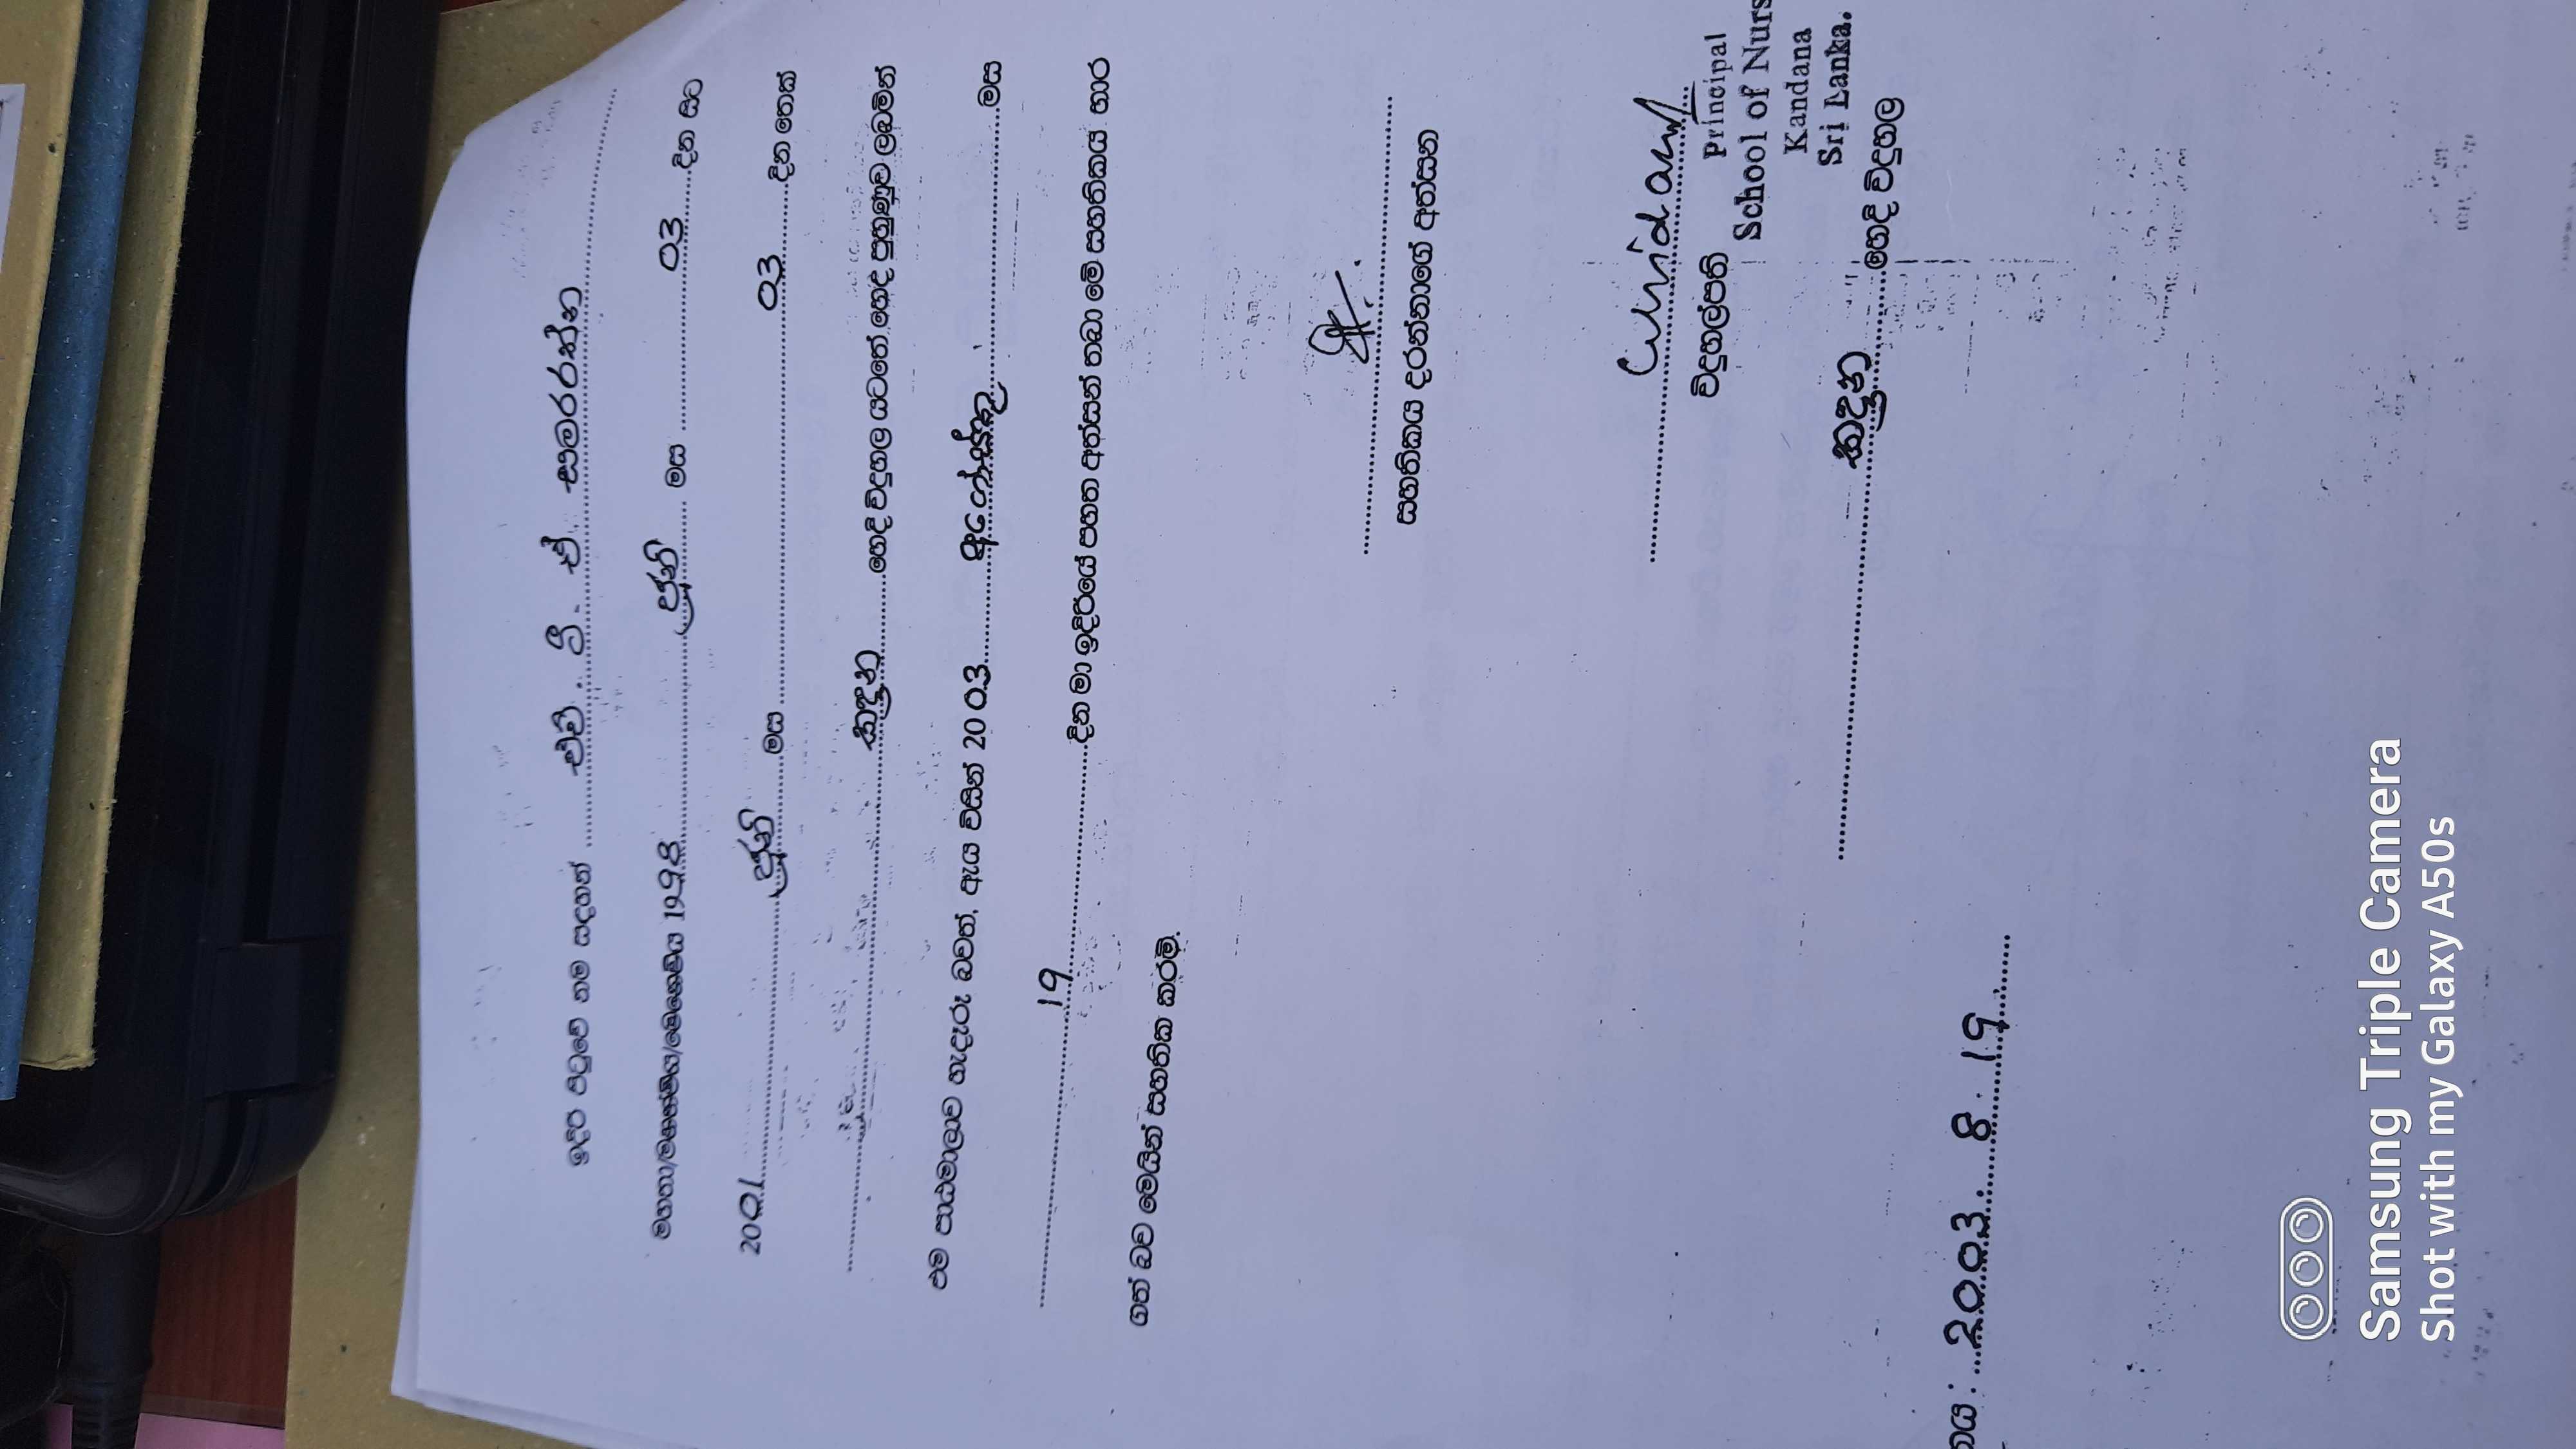 ඉදිරි පිටුවේ නම සඳහන් ........ එච්. පී. ඒ. සමරරත්න ........
මහතා/මහත්මිය/මෙනෙවිය 1998 ........ ජුනි ........ මස ........ 03 ........ දින සිට
2001 ........ ජුනි ........ මස ........ 03 ........ දින තෙක්
........ කඳාන ........ හෙද විදුහල යටතේ හෙද පුහුණුව ලබමින්
එම පාඨමාලාව හැදෑරූ බවත්, ඇය විසින් 2003 ........ අගෝස්තු ........ මස
........ 19 ........ දින මා ඉදිරියේ පහත අත්සන් තබා මේ සහතිකය භාර
ගත් බව මෙයින් සහතික කරමි.
සහතිකය දරන්නාගේ අත්සන
විදුහල්පති
Principal
School of Nurs
Kandana
Sri Lanka.
........ කඳාන ........ හෙද විදුහල
නය : 2003. 8. 19
Samsung Triple Camera
Shot with my Galaxy A50s